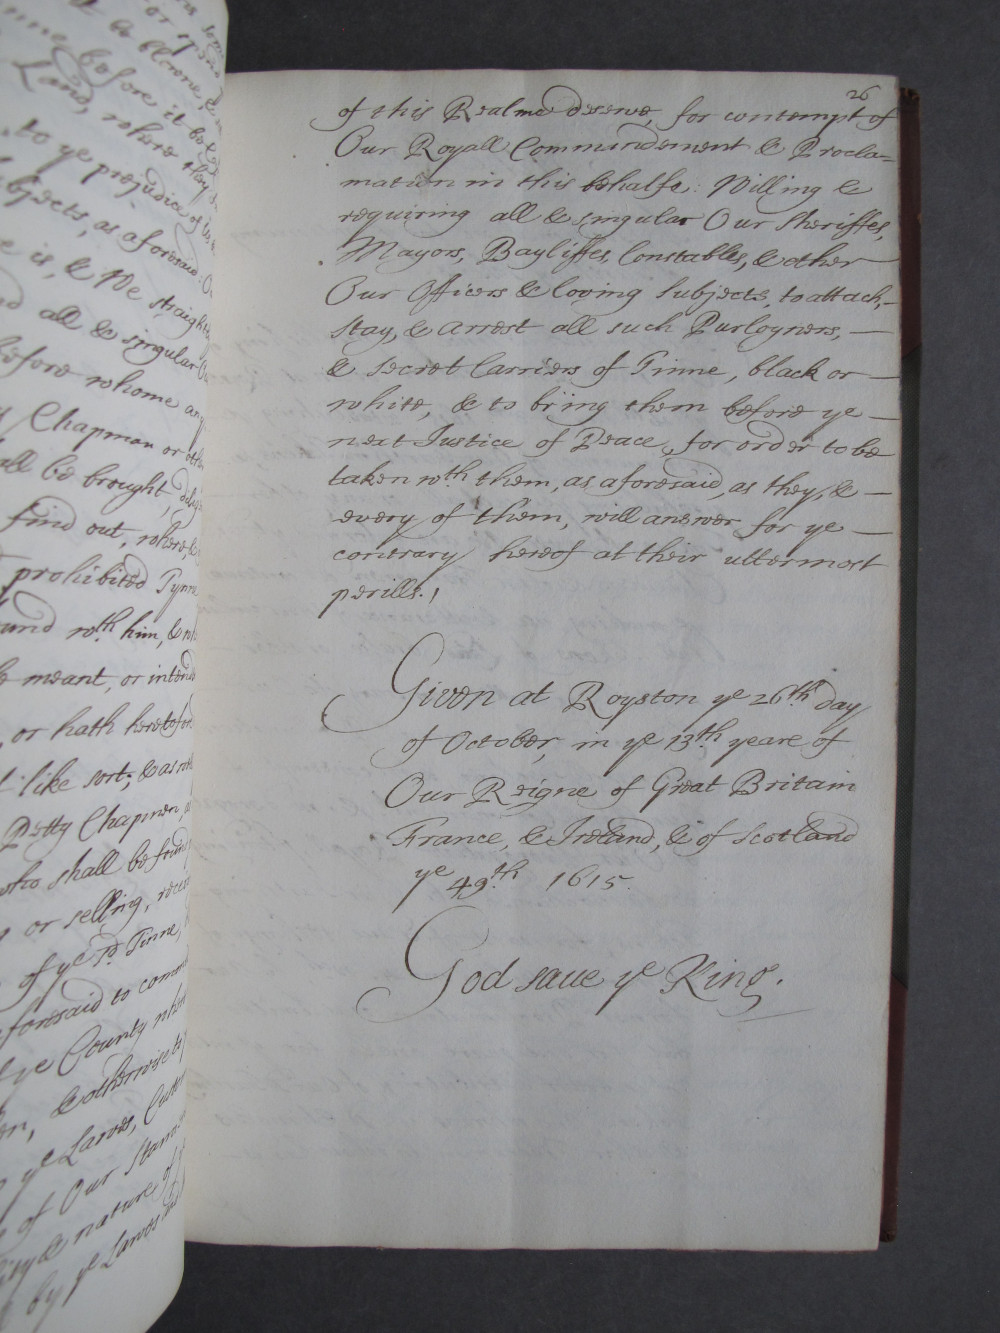 26
of this Realme deserve, for contempt of
Our Royall Commandement & Procla-
mation in this behalfe: Willing &
requiring all & singular Our Sheriffes,
Mayors, Bayliffes, Constables, & other
Our Officers & loving Subjects, to attach,
stay, & arrest all such Purloyners,
& secret Carriers of Tinne, black or
white, & to bring them before ye
next Justice of Peace, for order to be
taken wth them, as aforesaid, as they, &
every of them, will answer for ye
contrary hereof at their uttermost
perills.
Given at Royston ye 26th Day
of October, in ye 13th yeare of
Our Reigne of Great Britain
France, & Ireland, & of Scotland
ye 49th 1615.
God save ye King.
before it be
Land, where they
to ye prejudice of
bjects, as aforesaid
is, & We straight
all & singular
before whome any
Chapman or other
all be brought,
find out, where,
prohibited Tynne
und wth him, &
meant, or intend
, or hath heretofor
like sort; & as
Petty Chapmen,
who shall be found
or selling,
of ye sd Tinne,
foresaid to
ye County where
& otherwise to
ye Lawes,
of Our
nature of
by ye Lawes